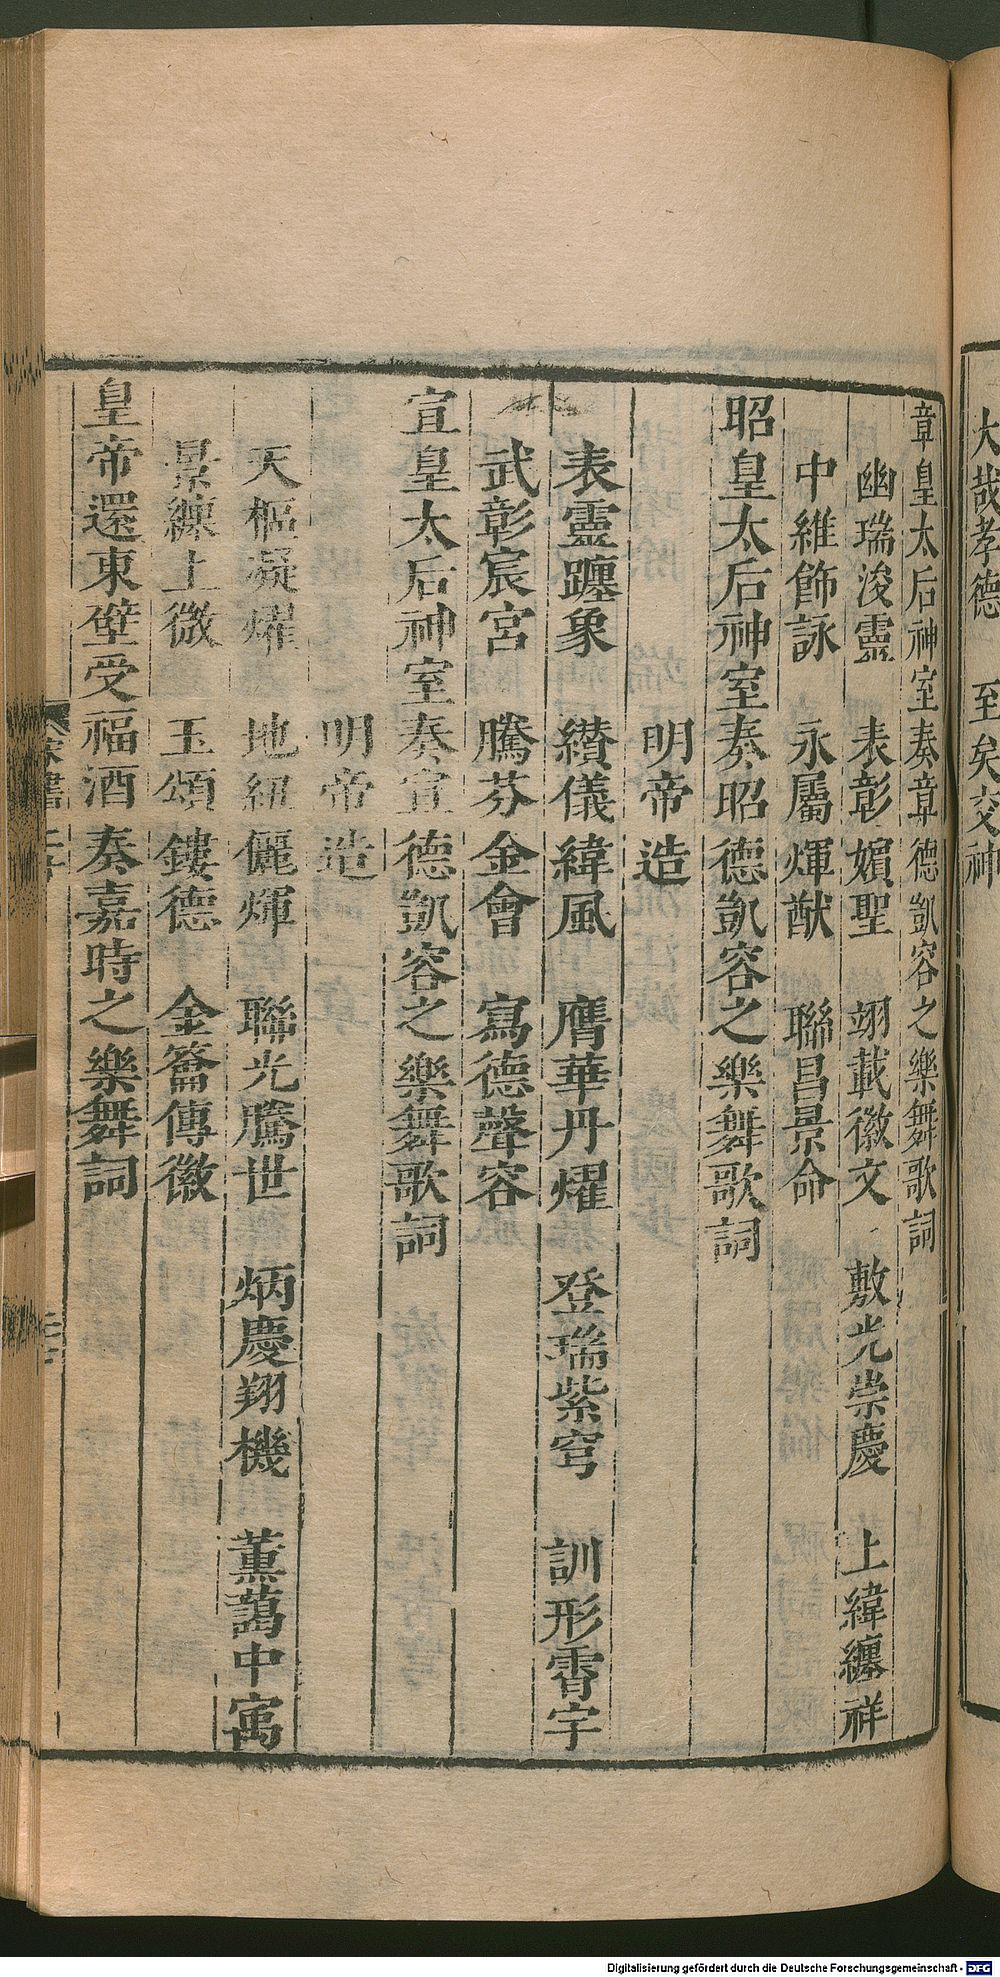 大哉孝德　至矣交神
章皇太后神室奏章德凱容之樂舞歌詞
幽瑞浚靈　表彰嬪聖　翊載徽文　敷光崇慶　上緯纏祥
中維飾詠　永屬煇猷　聯昌景命
昭皇太后神室奏昭德凱容之樂舞歌詞
明帝造
表靈躔象　纘儀緯風　膺華丹燿　登瑞紫穹　訓形霄宇
武彰宸宮　騰芬金會　寫德聲容
宣皇太后神室奏宣德凱容之樂舞歌詞
明帝造
天樞凝燿　地紐儷煇　聯光騰世　炳慶翔機　薰藹中㝢
景纏上微　玉頌鏤德　金籥傳徽
皇帝還東壁受福酒奏嘉時之樂舞詞
Digitalisierung gefördert durch die Deutsche Forschungsgemeinschaft - DFG